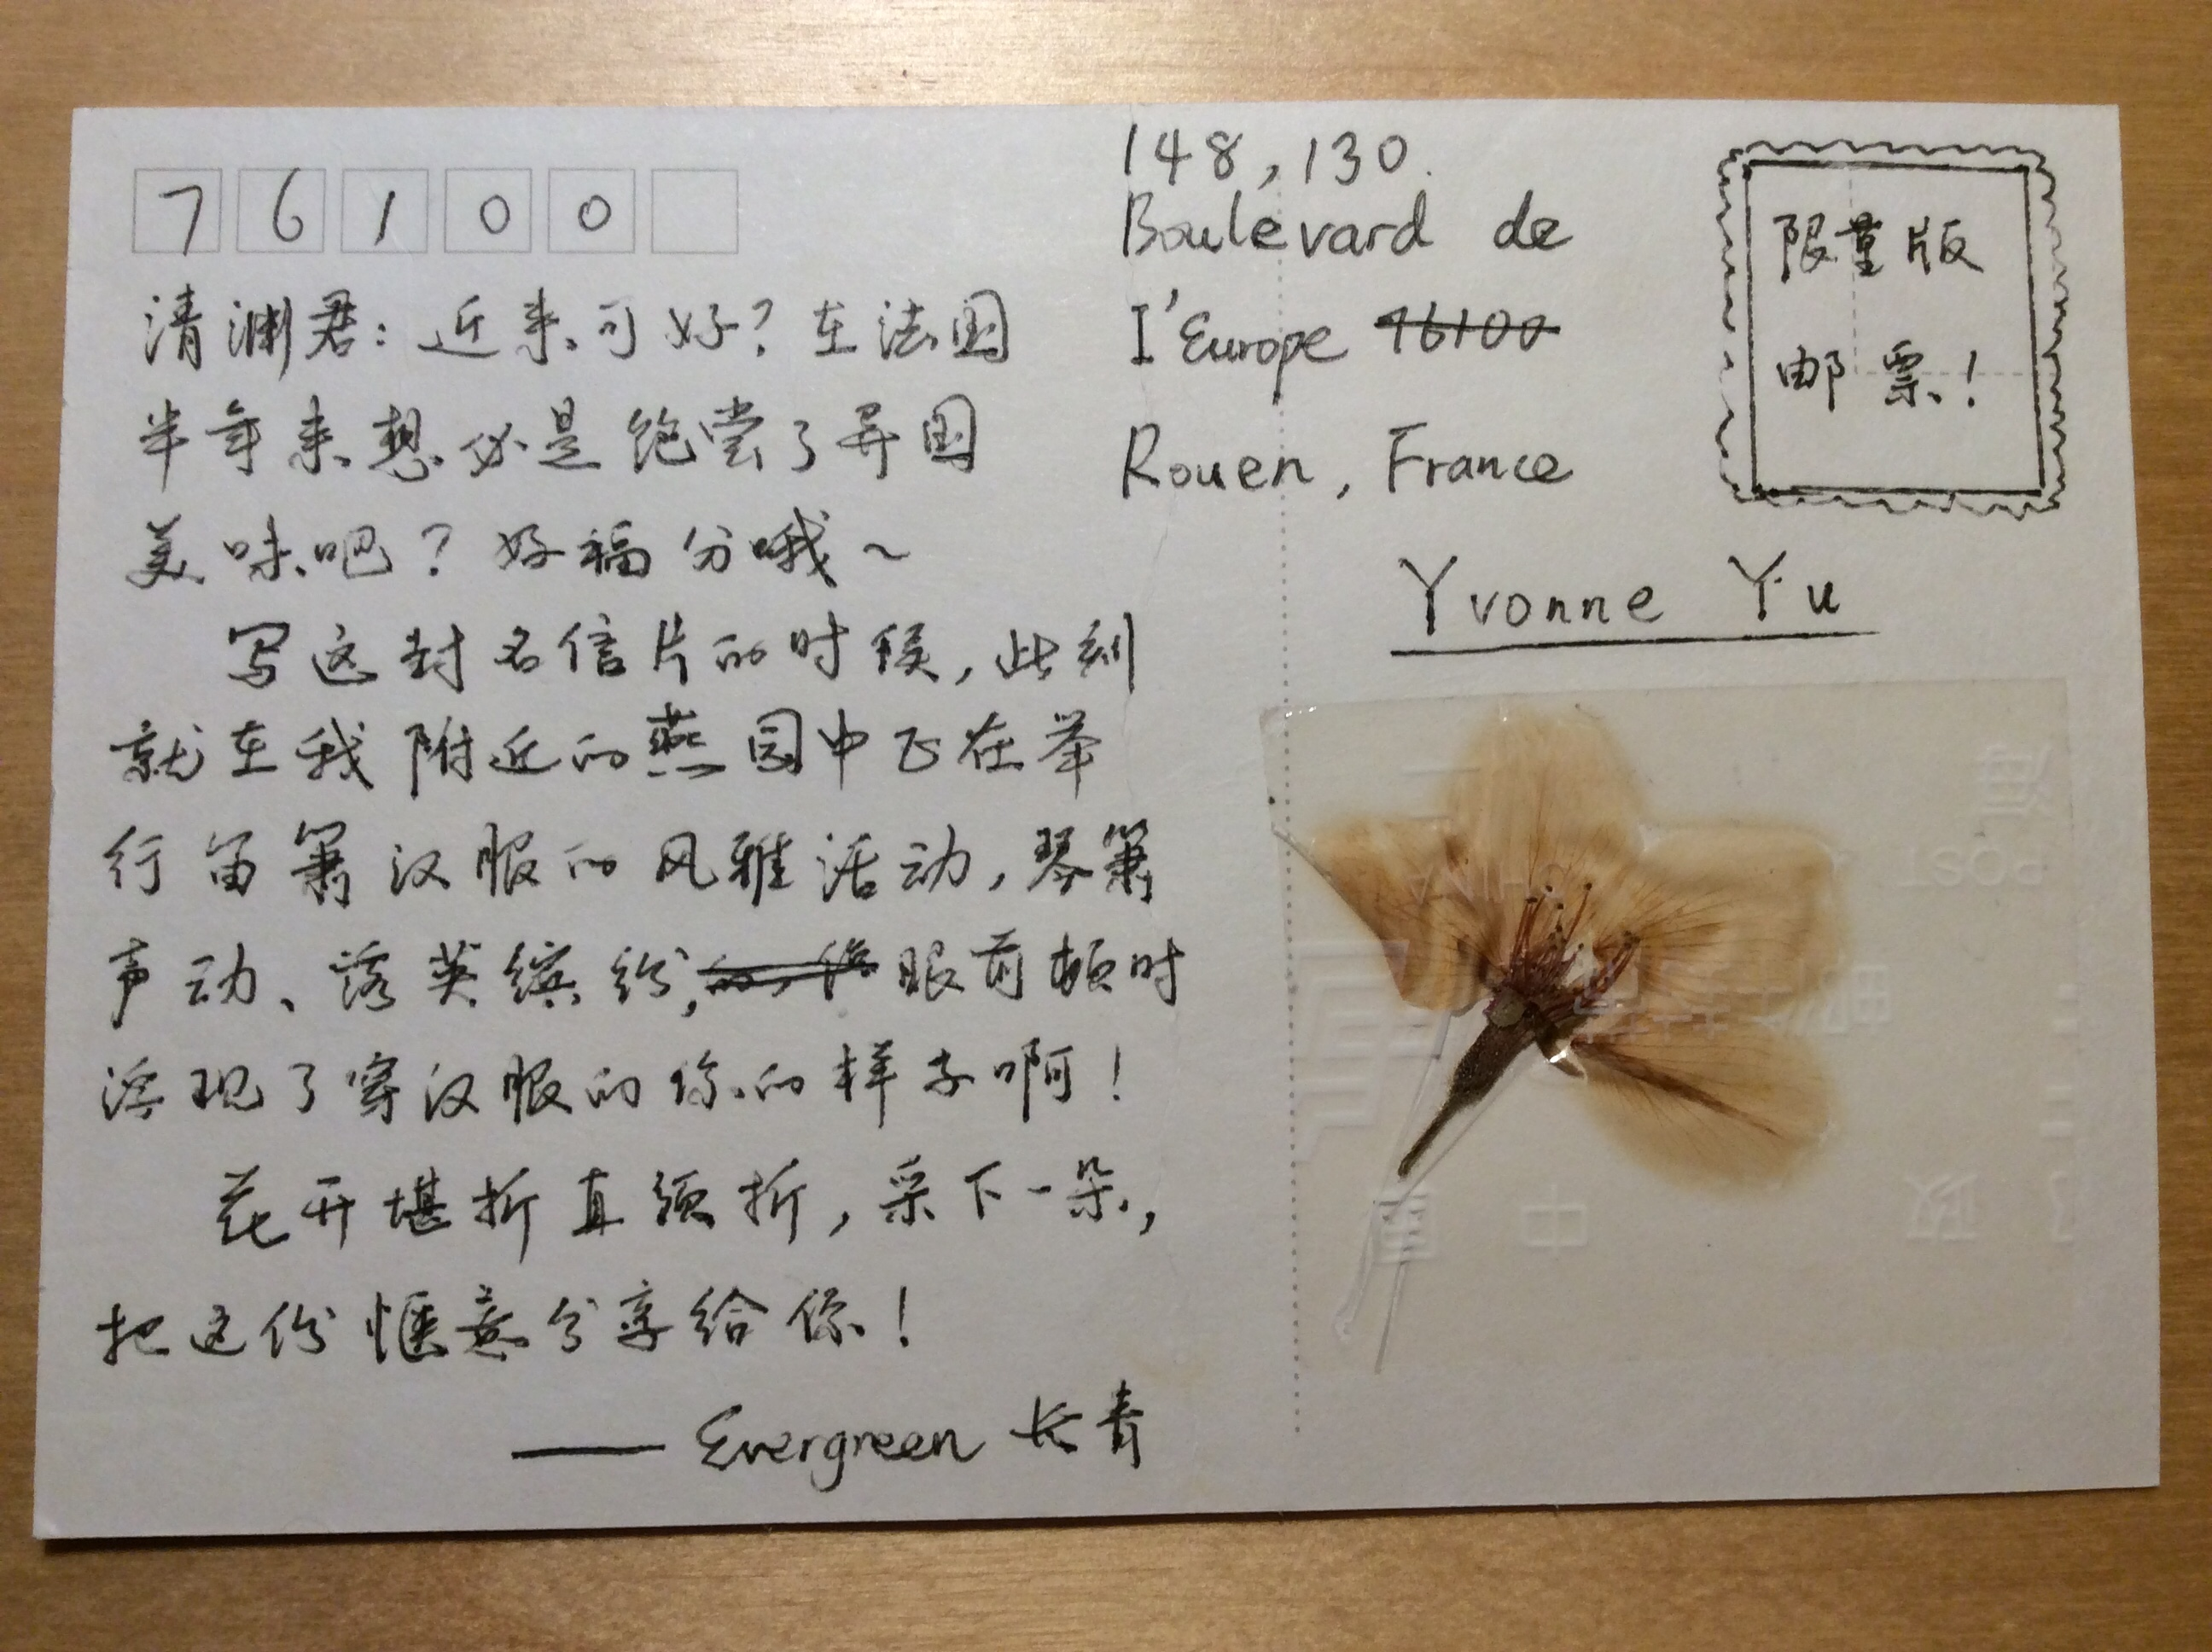 76100
清渊君：近来可好？在法国
半年来想必是饱尝了异国
美味吧？好福分哦～
写这封名信片的时候，此刻
就在我附近的燕园中飞在举
行笛箫汉服的风雅活动，琴箫
声动、落英缤纷，眼前顿时
浮现了穿汉服的你的样子啊！
花开堪折直须折，采下一朵，
把这份惬意分享给你！
—— Evergreen 长青
148,130.
Boulevard de
I'Europe 76100
Rouen, France
Yvonne Yu
限量版
邮票！
POST
中
政